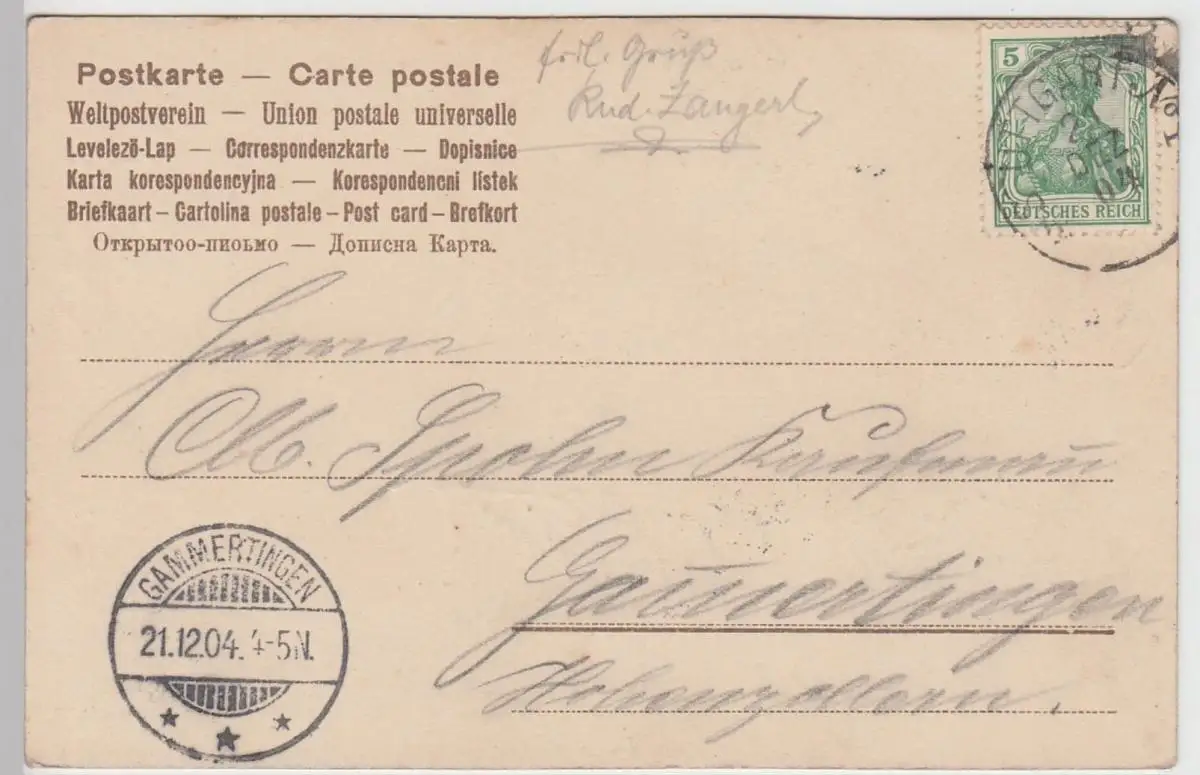 Postkarte — Carte postale
Weltpostverein — Union postale universelle
Levelező-Lap — Correspondenzkarte — Dopisnice
Karta korespondencyjna — Korespondencni listek
Briefkaart – Cartolina postale – Post card – Brefkort
Открытоо-пиоьмо — Дописна Карта.
frdl. Gruß
Rud. Zangerl
5
DEUTSCHES REICH
STUTTGART No 1
DEZ
04
Herrn
Alb. Spohn Kaufmann
Gam̄ertingen
Hohenzollern.
GAMMERTINGEN
21.12.04. 4-5N.